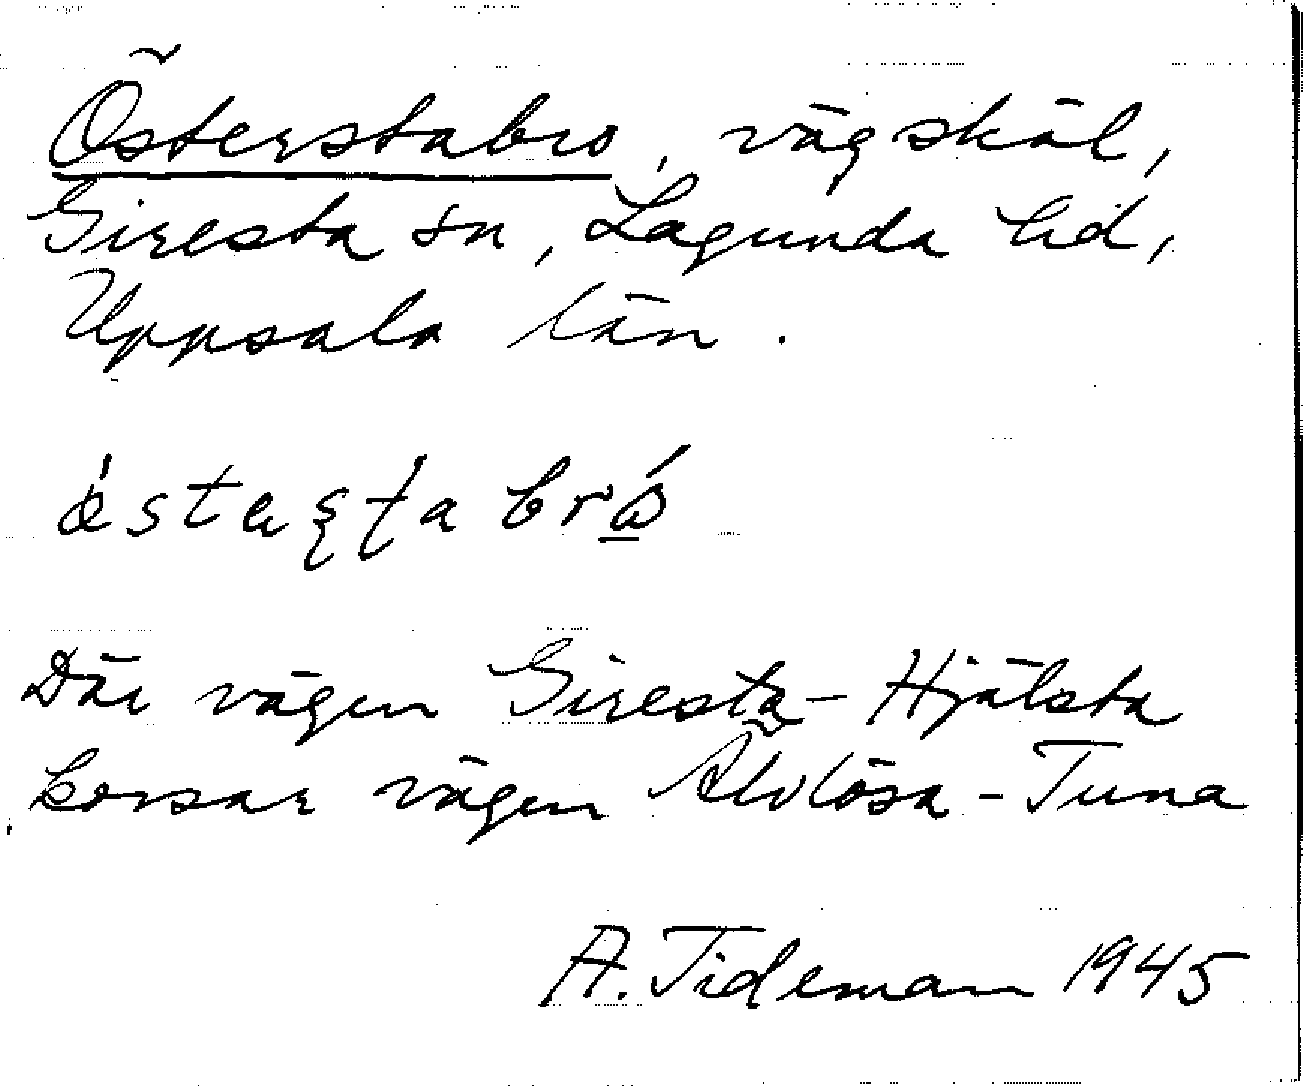 Österstabro, vägskäl,
Giresta sn, Lagunda hd,
Uppsala län.
Där vägen Giresta - Hjälsta
korsar vägen Älvlösa - Tuna
A. Tideman 1945